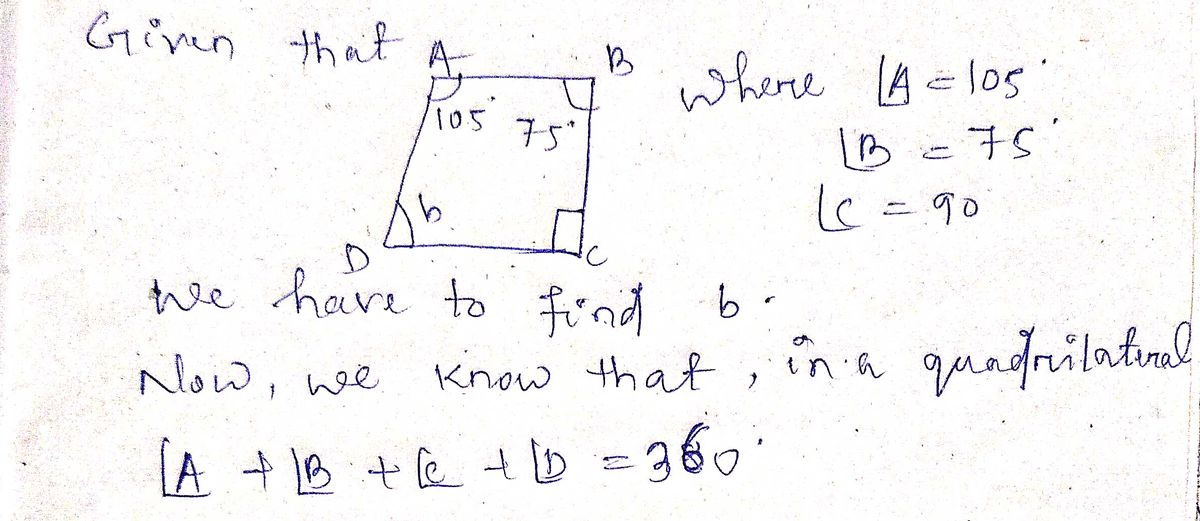 Given that A B where ∠A = 105°
105° 75° ∠B = 75°
b. ∠C = 90
D C
we have to find b.
Now, we know that, in a quadrilateral
∠A + ∠B + ∠C + ∠D = 360°